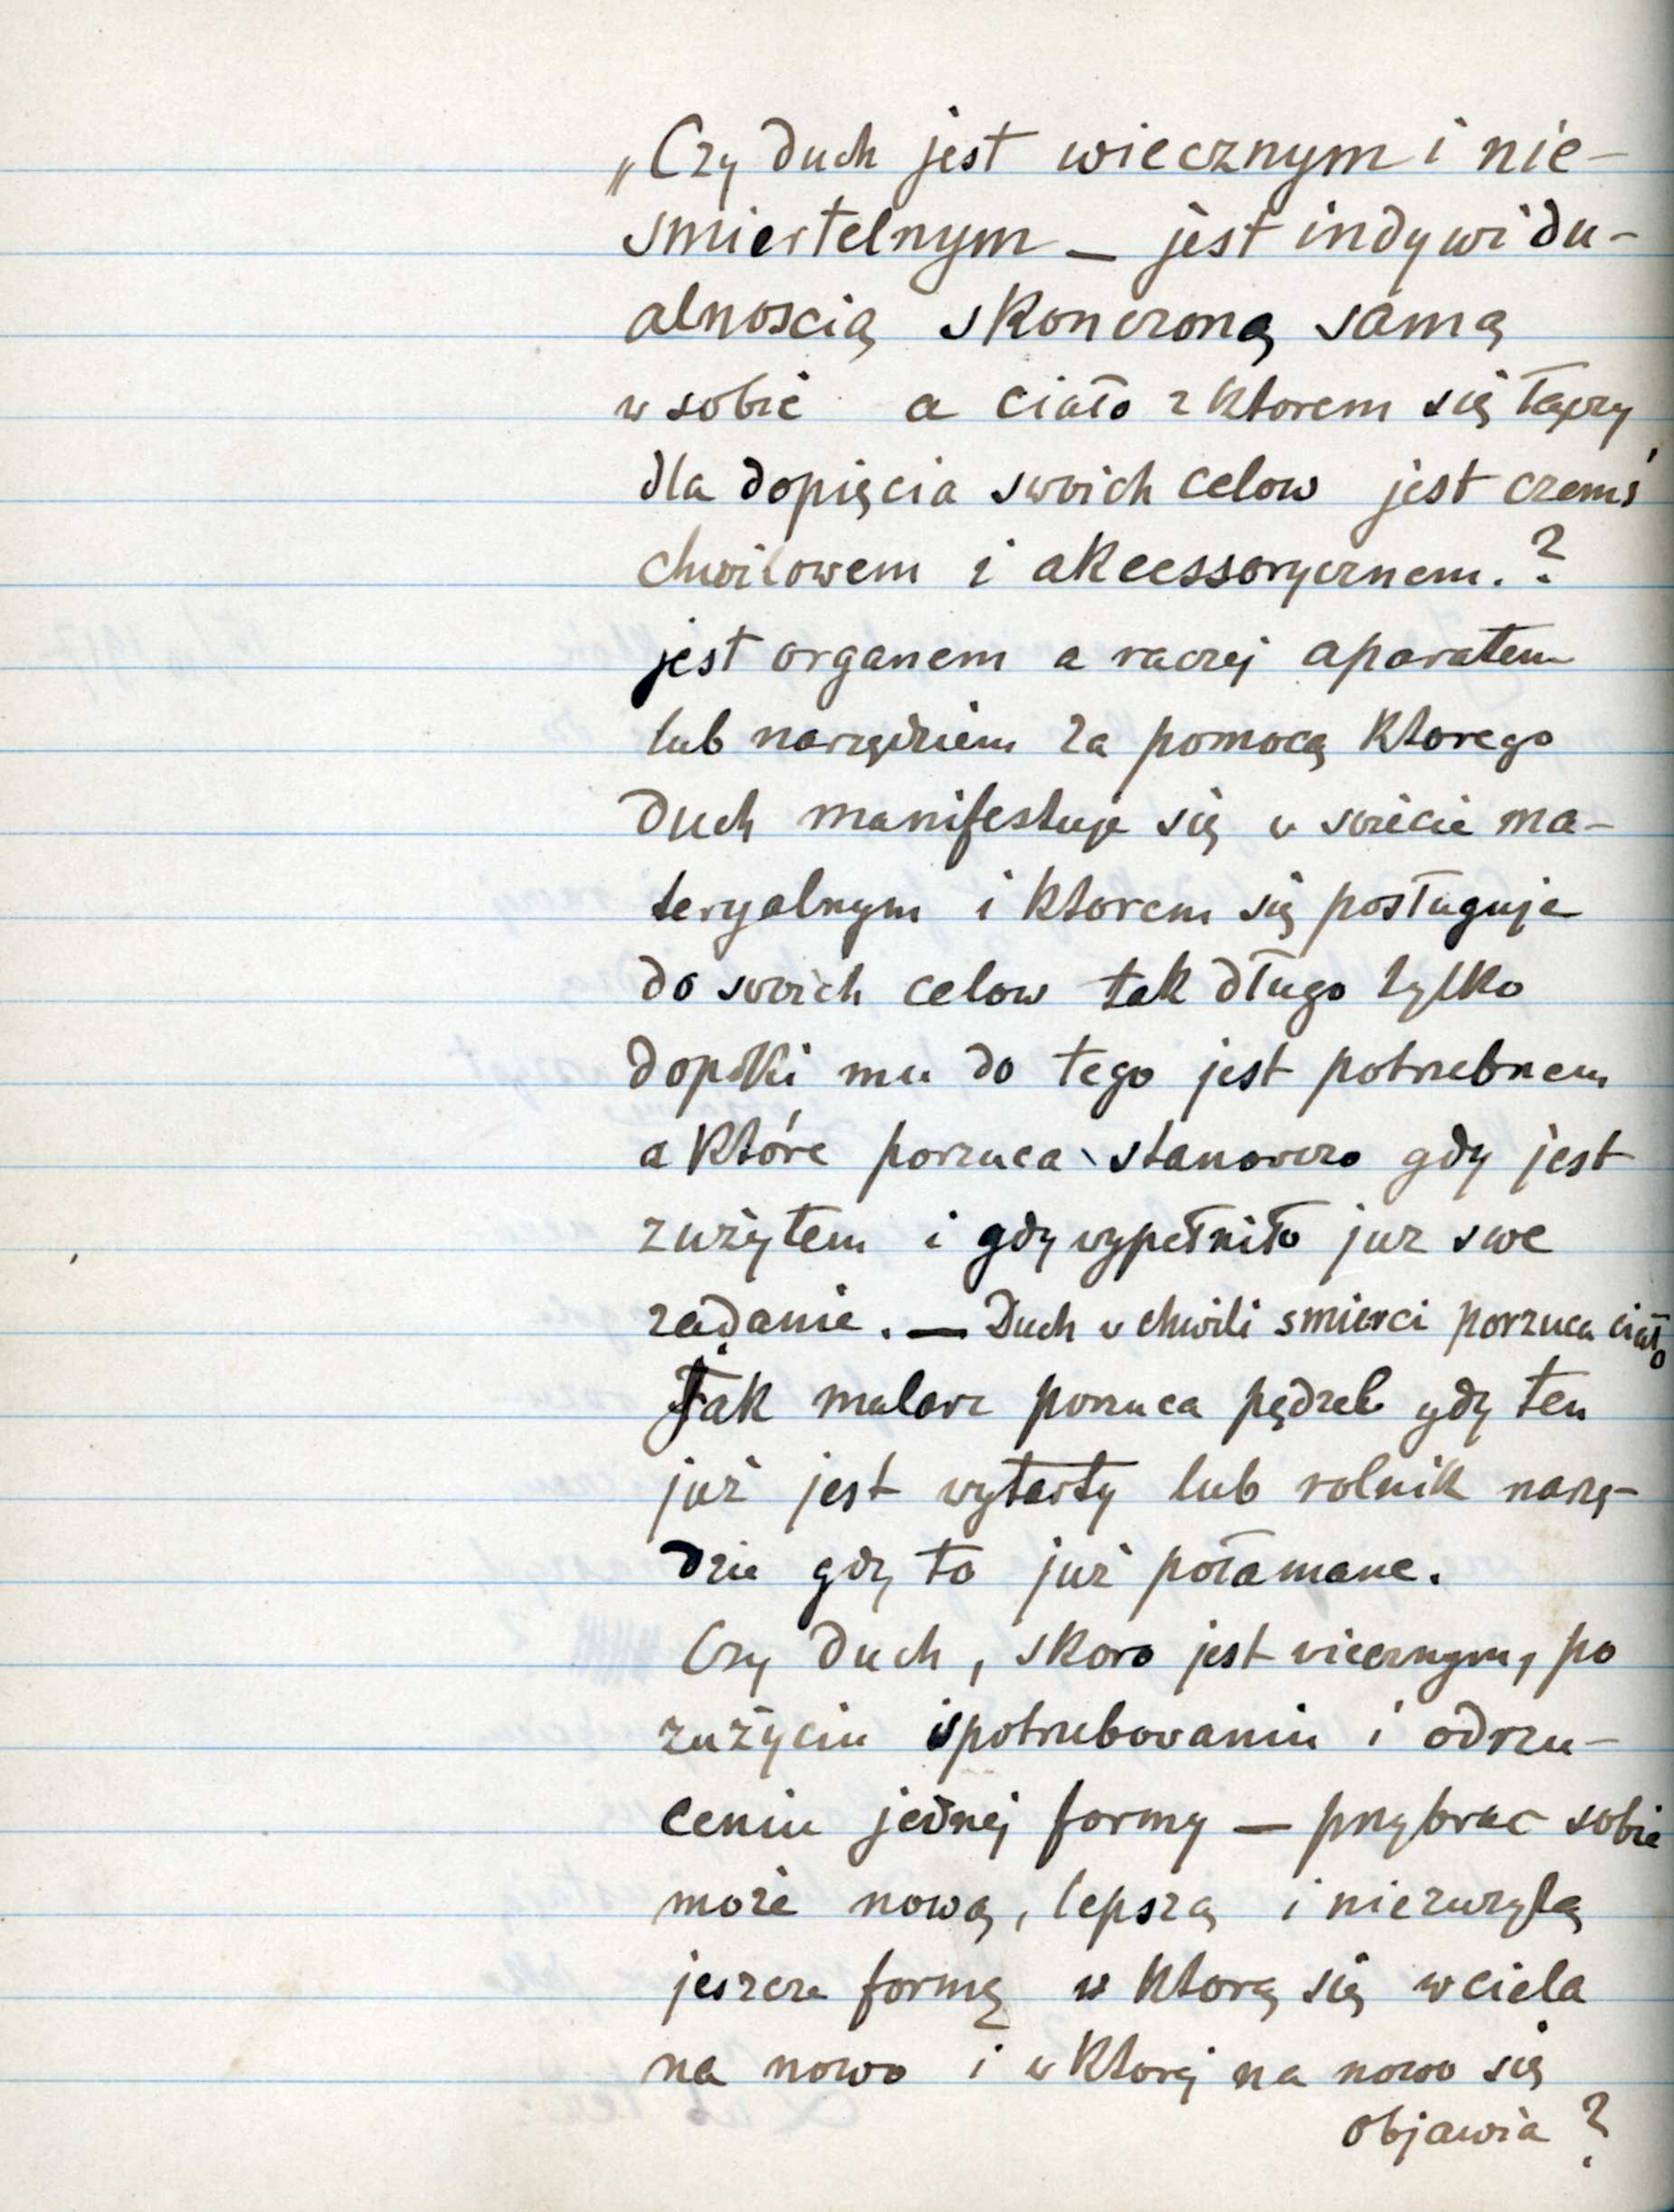 „Czy duch jest wiecznym i nie-
smiertelnym — jest indywidu-
alnoscią skonczoną samą
w sobie a ciało z ktorem się łączy,
dla dopięcia swoich celow jest czemś
chwilowem i akcessorycznem.?
jest organem a raczej aparatem
lub narzędziem za pomocą ktorego
Duch manifestuje się w swiecie ma-
teryalnym i ktorem się posługuje
do swoich celow tak długo tylko
dopóki mu do tego jest potrzebnem
a które porzuca stanowczo gdy jest
zużytem i gdy wypełniło juz swe
zadanie. — Duch w chwili smierci porzuca ciało
Jak malarz porzuca pędzel gdy ten
już jest wytarty lub rolnik narzę-
dzie gdy to już połamane.
Czy Duch, skoro jest wiecznym, po
zużyciu spotrzebowaniu i odrzu-
ceniu jednej formy — przybrac sobie
może nową, lepszą i niezużytą
jeszcze formę w ktorą się wciela
na nowo i w ktorej na nowo się
objawia?